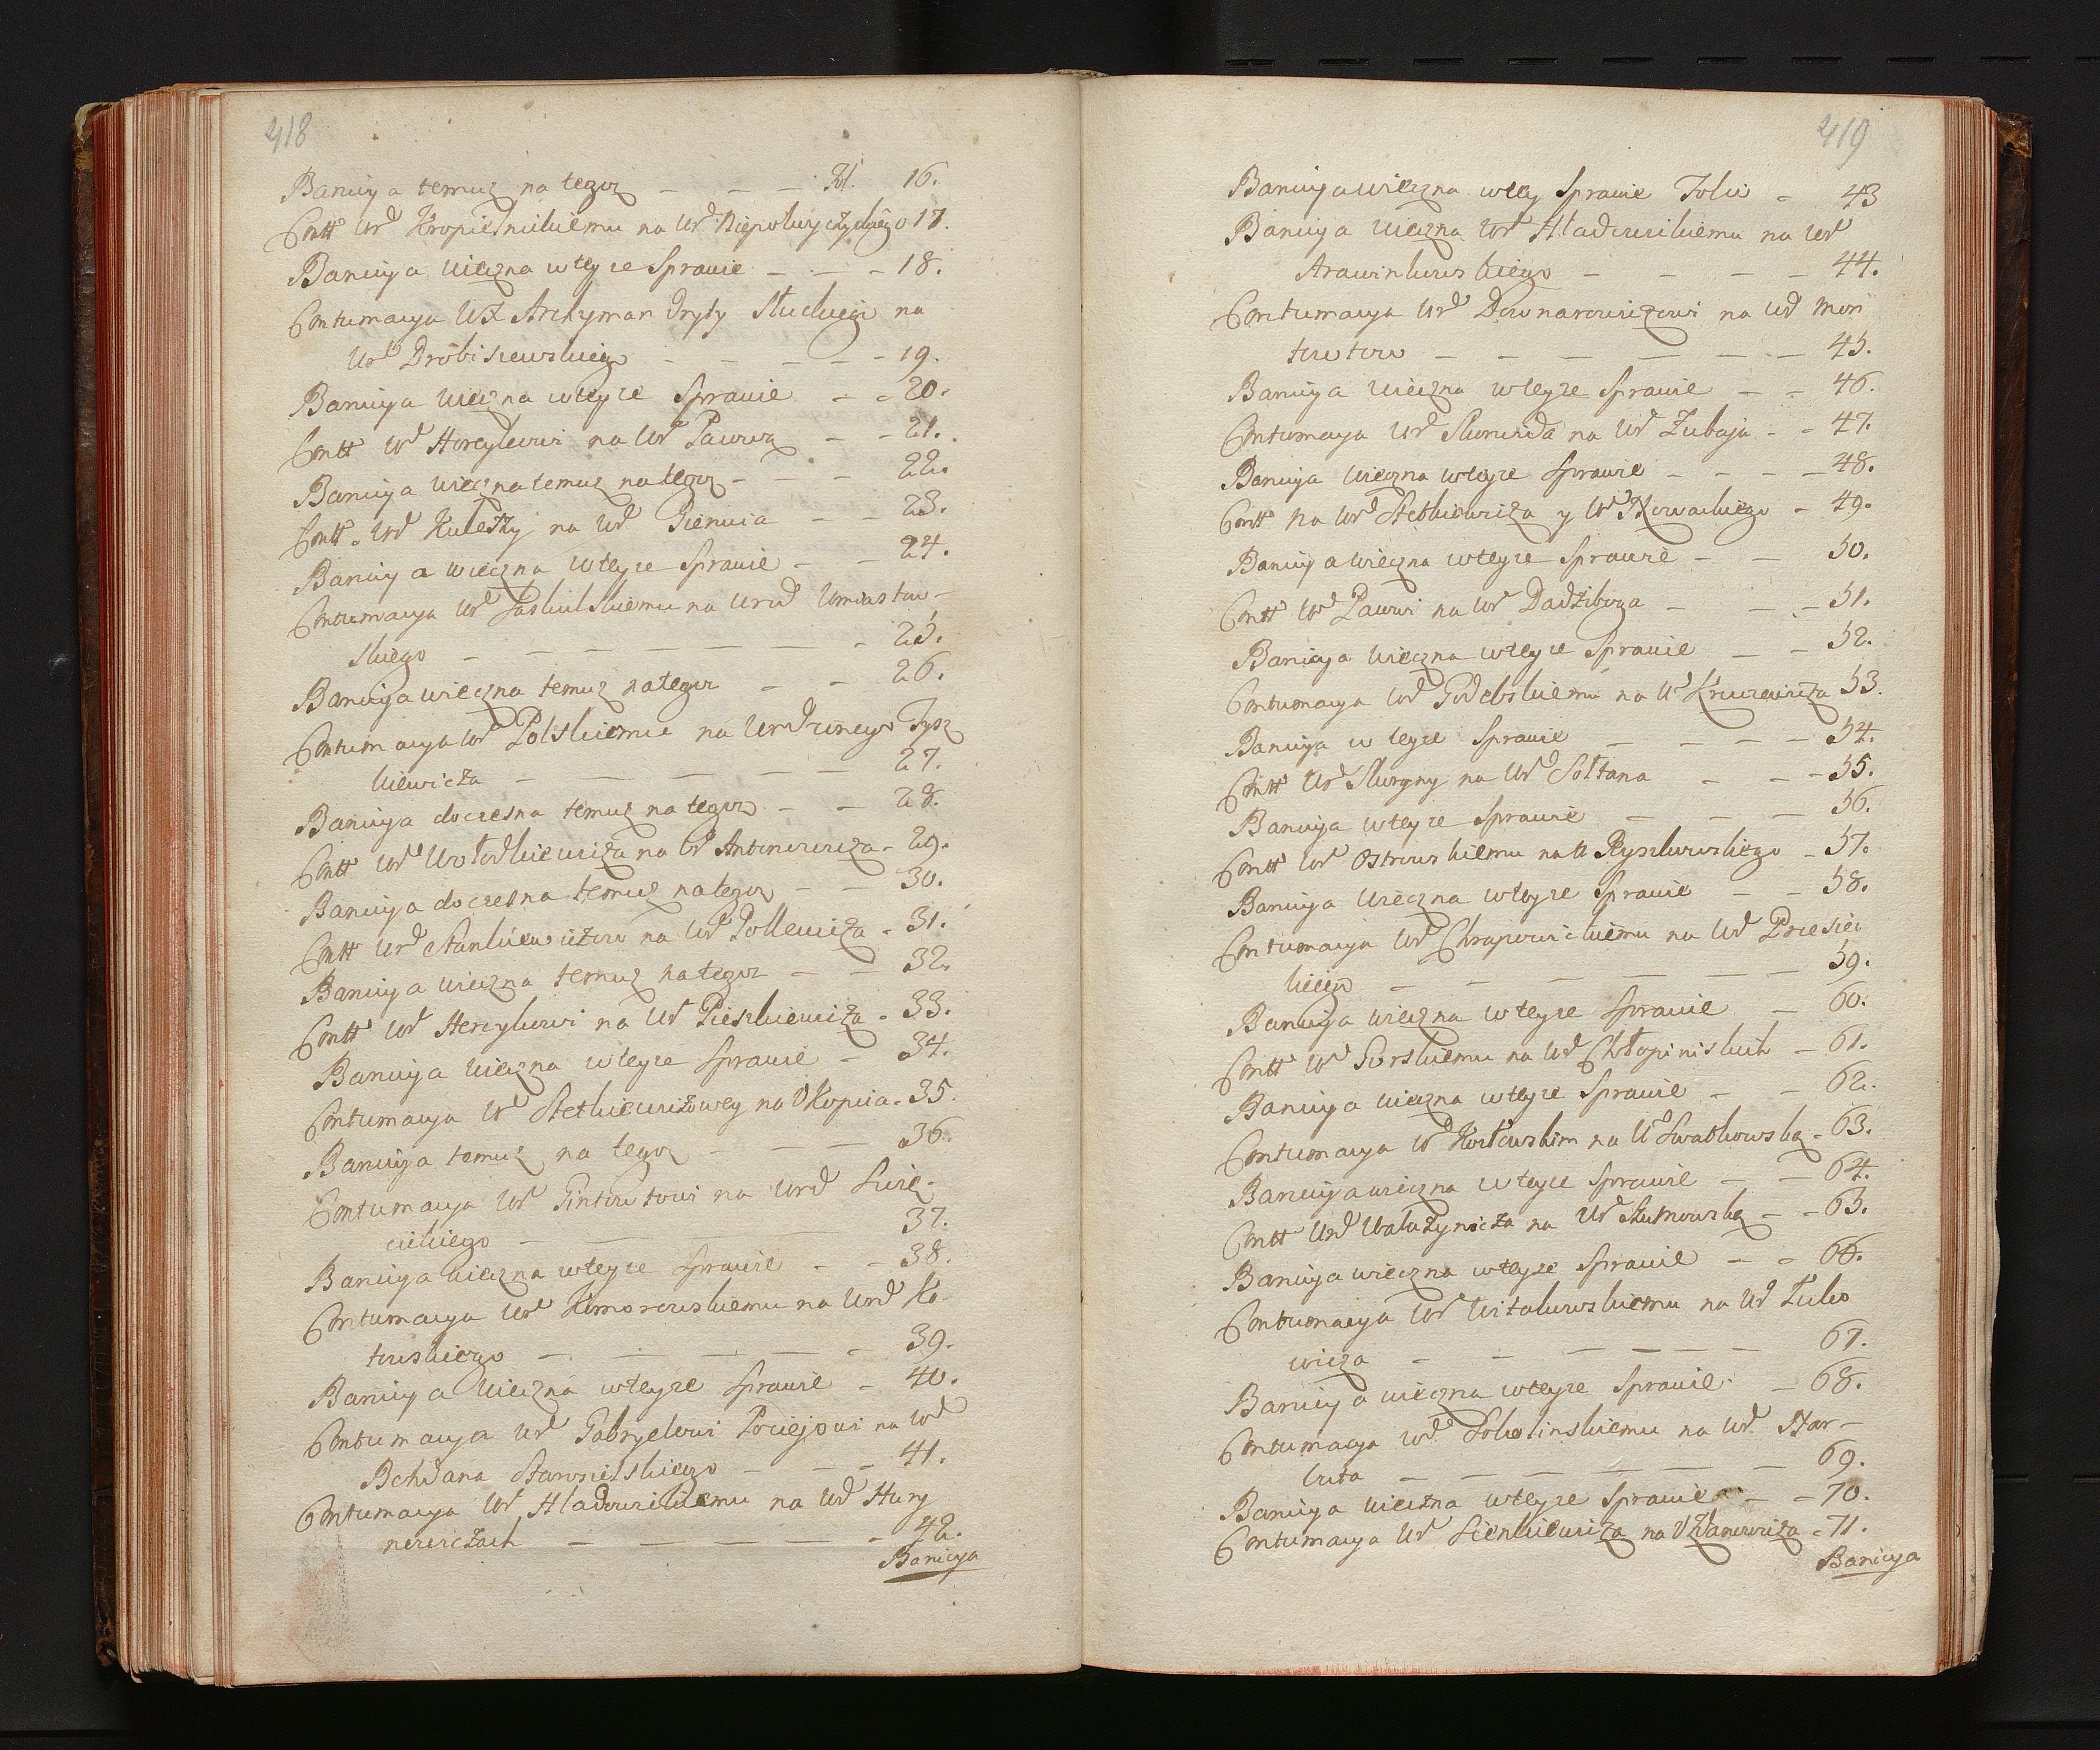 418
Banicya temuz na tegoz — — — fol. 16.
Contt Urd Kropielnickiemu na Urd Niepokuyczyckiego 17.
Banicya wieczna w teyze Sprawie — — — 18.
Contumacya WX Archymandryty Sluckiego na
Urd Drobiszewskiego — — — — — 19.
Banicya wieczna w teyze Sprawie — — 20.
Contt Urd Horcylowi na Urd Pawszą — — 21.
Banicya wieczna temuz na tegoz — — — 22.
Contt. Urd Kuleszy na Urd Piencia — — 23.
Banicya wieczna w teyze Sprawie — — 24.
Contumacya Urd Jaskulskiemu na Urud Umiastow-
skiego — — — — — — — — 25.
Banicya wieczna temuz na tegoz — — 26.
Contumacya Urd Polskiemu na Urodzonego Tysz
kiewicza — — — — — 27.
Banicya doczesna temuz na tegoz — — 28.
Contt Urd Wolodkiewicza na Ur Antonowicza - 29.
Banicya doczesna temuz na tegoz — — 30.
Contt Urd Stankiewiczow na Urd Pollewicza - 31.
Banicya wieczna temuz na tegoz — — 32.
Contt Urd Hercykowi na Ur Pieszkiewicza - 33.
Banicya wieczna w teyze Sprawie — 34.
Contumacya Ur Stetkiewiczowey na U Kopcia - 35.
Banicya temuz na tegoz — — — 36.
Contumacya Ur Gintowtowi na Urd Swię-
cickiego — — — — — 37.
Banicya wieczna w teyze Sprawie — — 38.
Contumacya Urd Komorowskiemu na Urd Ko-
towskiego — — — — — 39.
Banicya wieczna w teyze Sprawie — 40.
Contumacya Ur Gabryelowi Pociejowi na Urd
Bohdana Starosielskiego — — — 41.
Contumacya Ur Hladowickiemu na Urd Hury
nowiczach — — — — — — 42.
Banicya
419
Banicya wieczna w tey Sprawie Folio - 43
Banicya wieczna Ur Hladowickiemu na Ur
Arawinkowskiego — — — — 44.
Contumacya Urd Downarowiczowi na Ud Mon
towtow — — — — — — — 45.
Banicya wieczna w teyze Sprawie — — 46.
Contumacya Urd Skoruda na Urd Zubaja - - 47.
Banicya wieczna w teyze Sprawie — — — — 48.
Contt na Urd Stetkiewicza y Ur Nowackiego - 49.
Banicya wieczna w teyze Sprawie — — 50.
Contt Urd Pawszi na Ur Dadzboga — — — 51.
Banicya wieczna w teyze Sprawie — — 52.
Contumacya Urd Godebskiemu na U Kruzewicza 53.
Banicya w teyze Sprawie — — — — 54.
Contt Urd Skurgny na Urd Sołtana — — — 55.
Banicya w teyze Sprawie — — — 56.
Contt Ur Ostrowskiemu na U Ryszkowskiego - 57.
Banicya wieczna w teyze Sprawie — — 58.
Contumacya Urd Chrapowickiemu na Urd Przesiec
kiego — — — — — — 59.
Banicya wieczna w teyze Sprawie — 60.
Contt Ur Gorskiemu na Urd Chłopinskich - 61.
Banicya wieczna w teyze Sprawie — — 62.
Contumacya Ur Kozłowskim na U Swatkowską - 63.
Banicya wieczna w teyze Sprawie — — 64.
Contt Urd Wołozynicza na Ur Skumowską - - 65.
Banicya wieczna w teyze Sprawie — — 66.
Contumacya Ur Witakowskiemu na Ur Łuko
wicza — — — — — — 67.
Banicya wieczna w teyze Sprawie — 68.
Contumacya Urd Sokolinskiemu na Urd Har-
buta — — — — — — — 69.
Banicya wieczna w teyze Sprawie — — 70.
Contumacya Ur Sienkiewicza na U Zdanowicza - 71.
Banicya